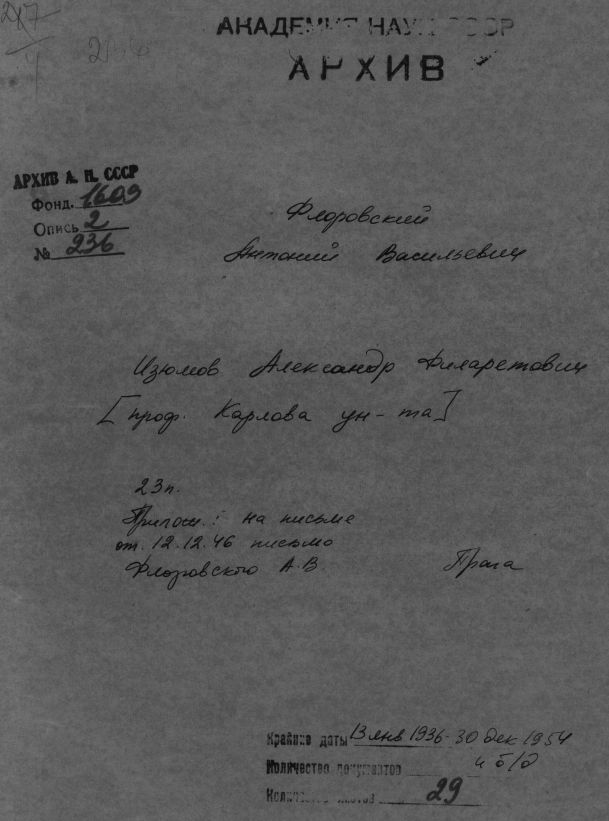 247
4
АКАДЕМИЯ НАУК СССР
АРХИВ
АРХИВ А. Н. СССР
Фонд. 1609
Опись 2
№ 236
Флоровский
Антоний Васильевич
Изюмов Александр Филаретович
[проф. Карлова ун-та]
23п.
Прилож.: на письме
от 12.12.46 письмо
Флоровского А.В.
Прага
Крайние даты 13 янв 1936-30 дек 1954
и б/д
Количество документов
Количество листов 29